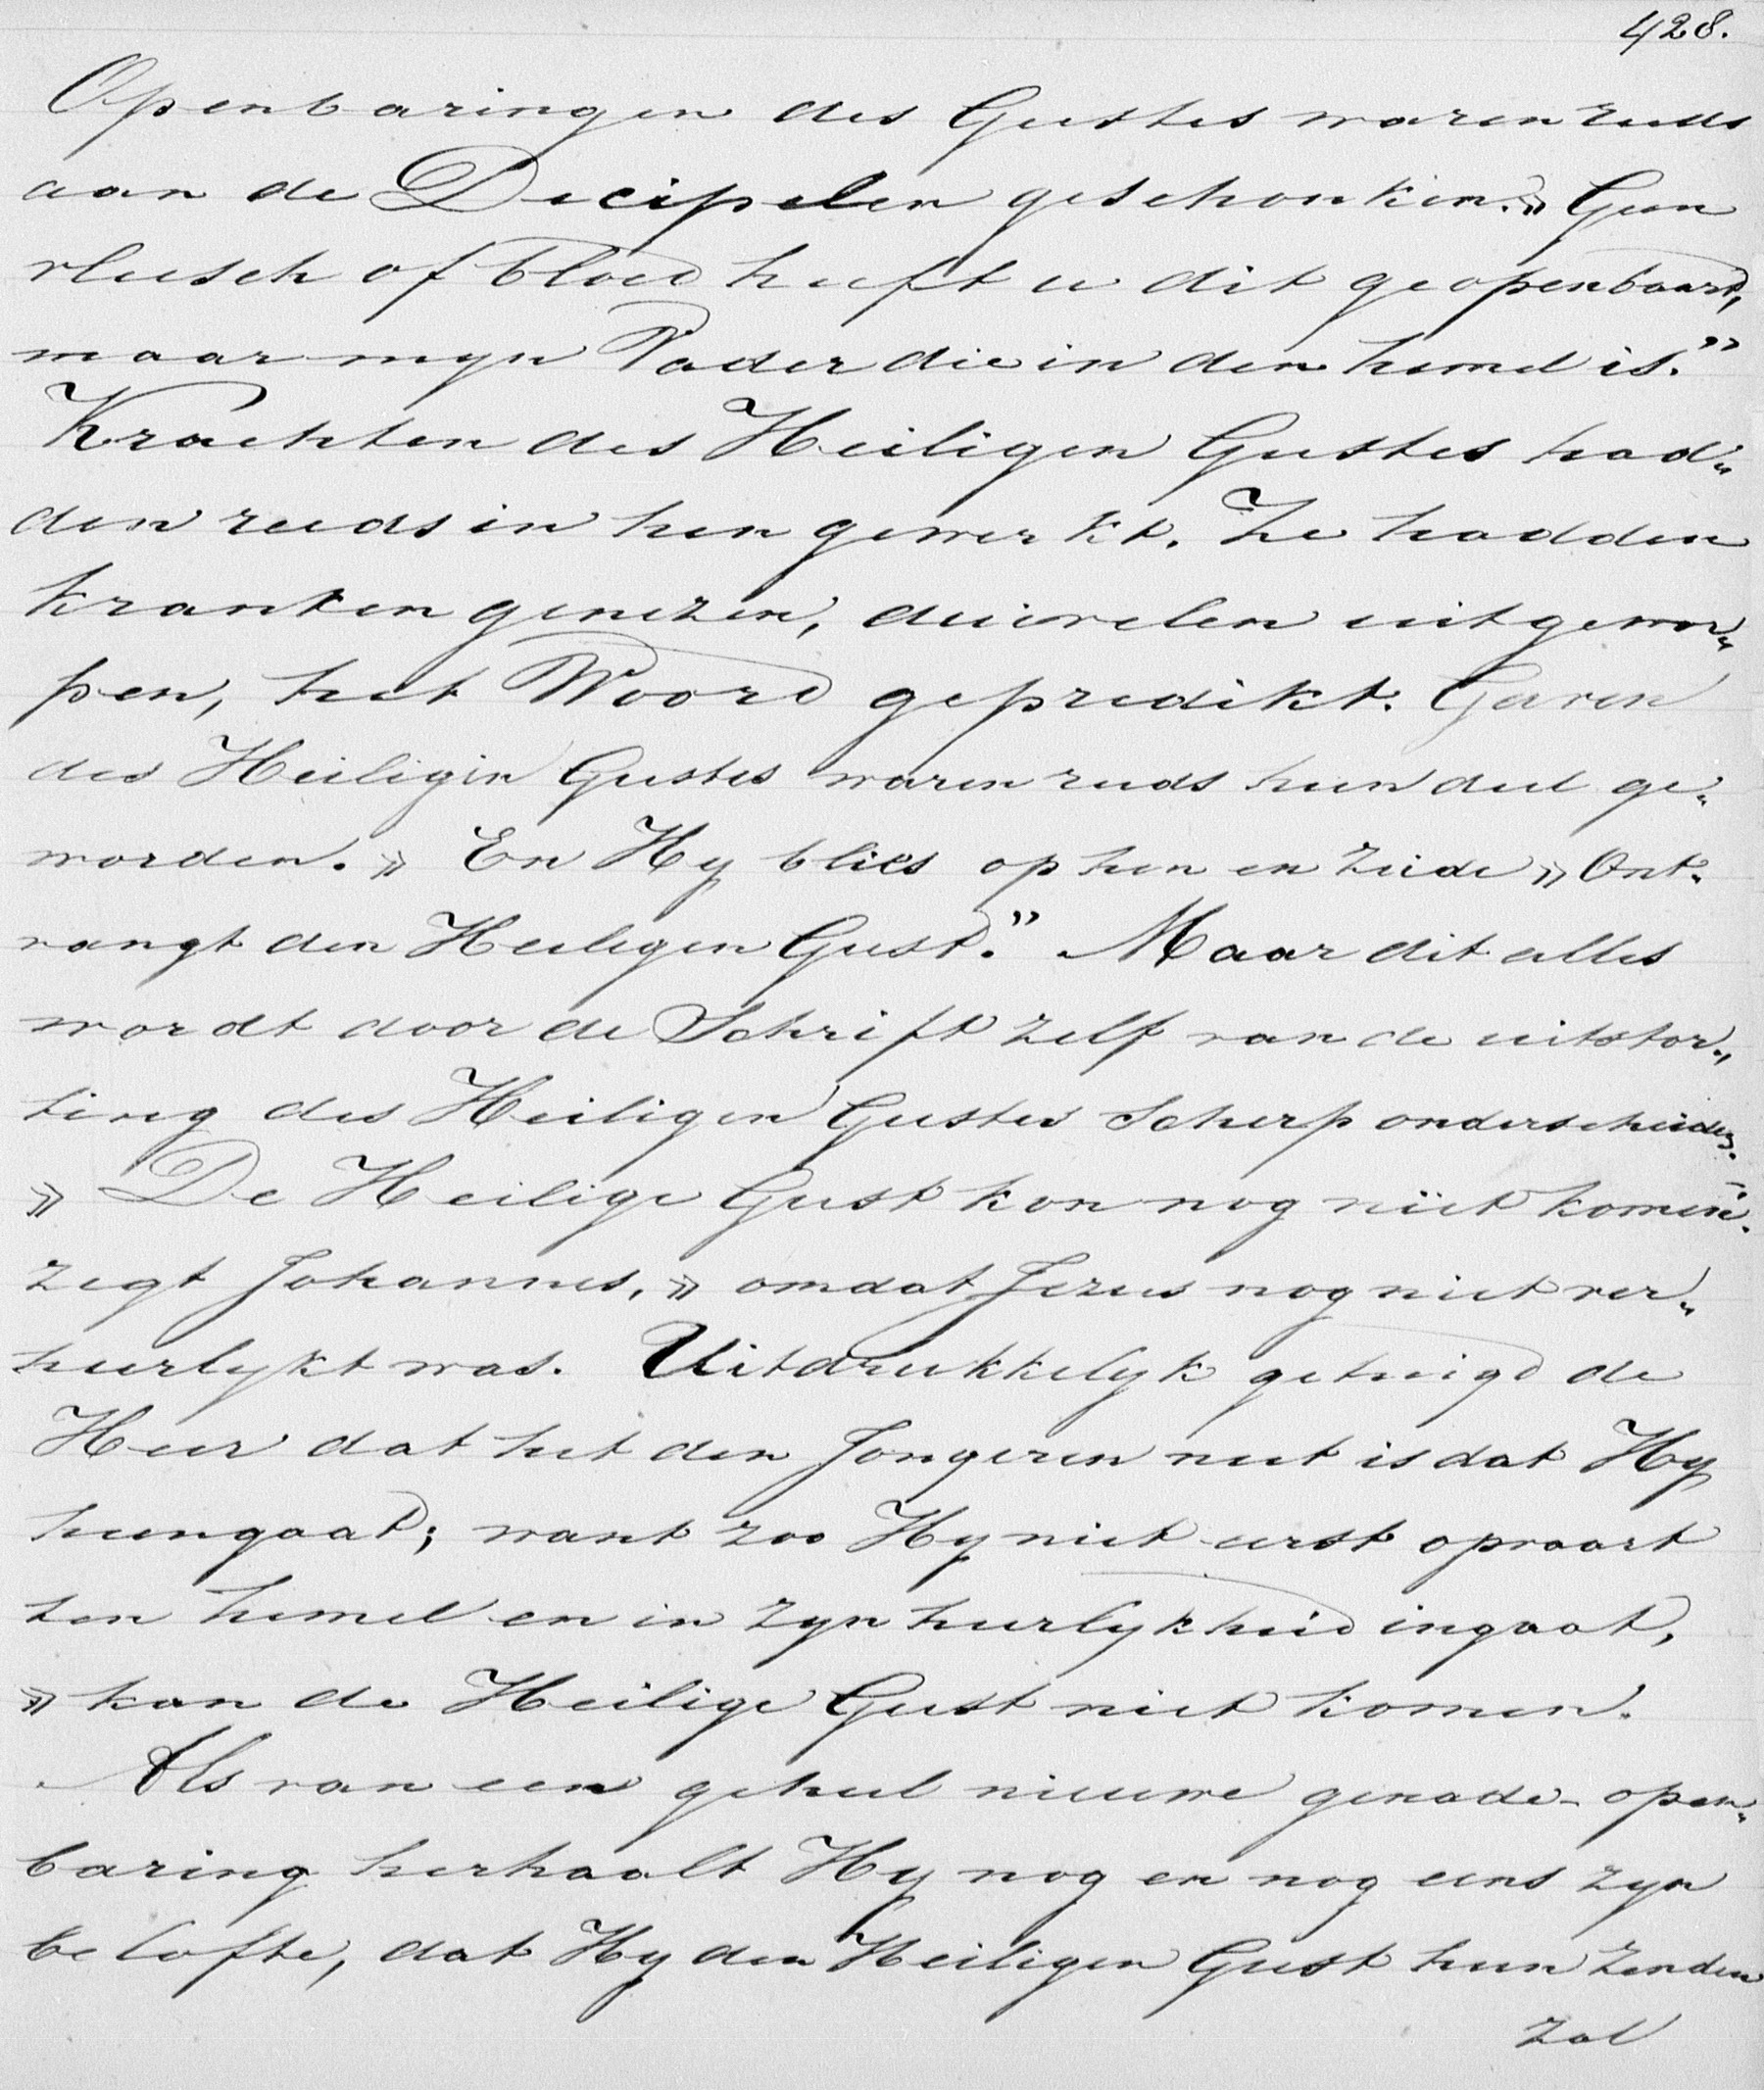 428.
Openbaringen des Geestes waren reeds
aan de Decipelen geschonken. » Geen
vleesch of bloed heeft u dit geopenbaard,
maar myn Vader die in den hemel is.”
Krachten des Heiligen Geestes had„
den reeds in hen gewerkt. Ze hadden
kranken genezen, duivelen uitgewor„
pen, het Woord gepredikt. Gaven
des Heiligen Geestes waren reeds hun deel ge„
worden. » En Hy blies op hen en zeide » Ont„
vangt den Heiligen Geest.” Maar dit alles
wordt door de Schrift zelf van de uitstor„
ting des Heiligen Geestes scherp onderscheiden.
» De Heilige Geest kon nog niet komen”.
zegt Johannes, » omdat Jezus nog niet ver„
heerlykt was. Uitdrukkelyk getuigd de
Heer dat het den Jongeren nut is dat Hy
heengaat; want zoo Hy niet eerst opvaart
ten hemel en in zyn heerlykheid ingaat,
» kan de Heilige Geest niet komen.
Als van een geheel nieuwe genade-open„
baring herhaalt Hy nog en nog eens zyn
belofte, dat Hy den Heiligen Geest hun zenden
zal